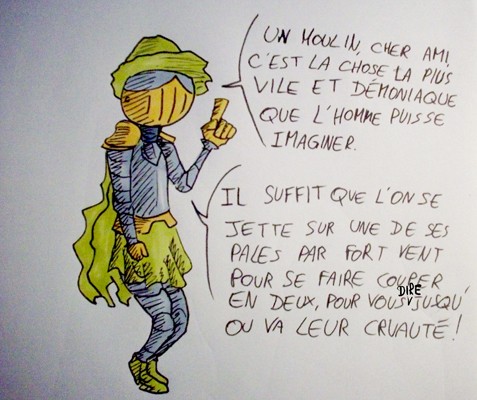 UN MOULIN, CHER AMI
C'EST LA CHOSE LA PLUS
VILE ET DÉMONIAQUE
QUE L'HOMME PUISSE
IMAGINER.
IL SUFFIT QUE L'ON SE
JETTE SUR UNE DE SES
PALES PAR FORT VENT
POUR SE FAIRE COUPER
EN DEUX, POUR VOUS DIRE JUSQU'
OU VA LEUR CRUAUTÉ !